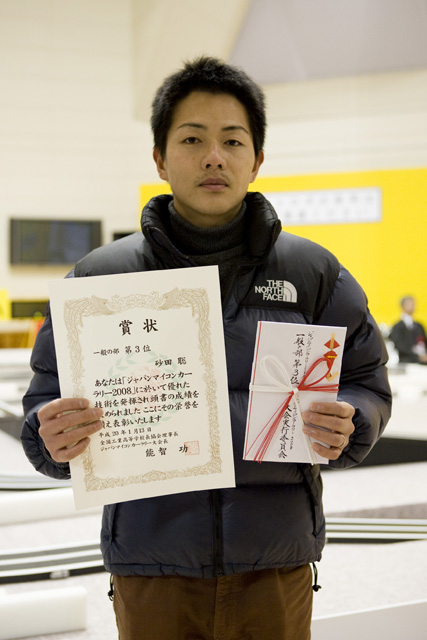 賞状
一般の部 第3位
砂田 聡
あなたは「ジャパンマイコンカー
ラリー2008」に於いて優れた
技術を発揮され頭書の成績を
収められました ここにその栄誉を
讃え表彰いたします
平成20年1月13日
全国工業高等学校長協会理事長
ジャパンマイコンカーラリー大会長
能智 功
THE
NORTH
FACE
一般の部 第3位
大会実行委員会